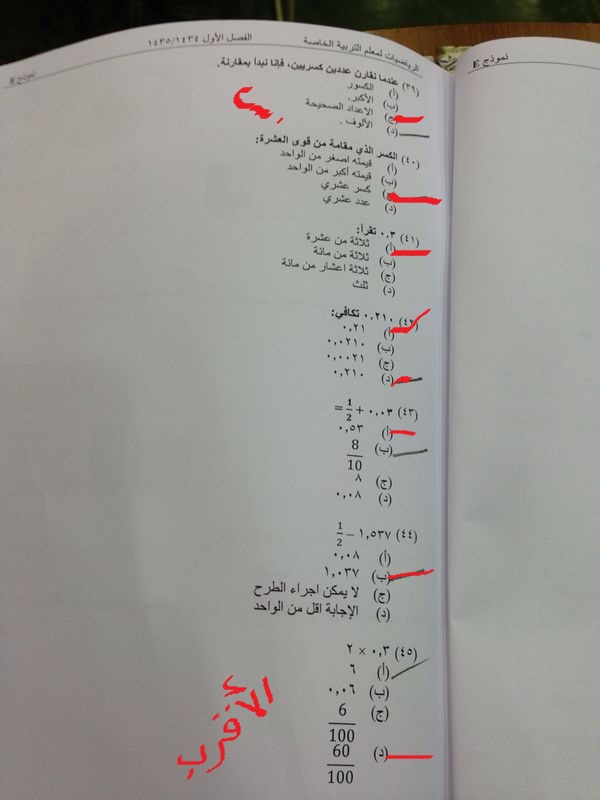 الرياضيات لمعلم التربية الخاصة
الفصل الأول ١٤٣٥/١٤٣٤
نموذج E
نموذج E
(٣٩) عندما نقارن عددين كسريين، فإننا نبدأ بمقارنة.
(أ) الكسور
(ب) الأكبر.
(ج) الاعداد الصحيحة
(د) الألوف .
(٤٠) الكسر الذي مقامة من قوى العشرة:
(أ) قيمته اصغر من الواحد
(ب) قيمته أكبر من الواحد
(ج) كسر عشري
(د) عدد عشري
(٤١) ٠.٣ تقرأ:
(أ) ثلاثة من عشرة
(ب) ثلاثة من مائة
(ج) ثلاثة اعشار من مائة
(د) ثلث
(٤٢) ٠,٢١٠ تكافي:
(أ) ٠,٢١
(ب) ٠,٠٢١٠
(ج) ٠,٠٠٢١
(د) ٠,٢١٠
(٤٣) ٠,٠٣ + 1/2 =
(أ) ٠,٥٣
(ب) 8/10
(ج) ٨
(د) ٠,٠٨
(٤٤) ١,٥٣٧ − 1/2
(أ) ٠,٠٨
(ب) ١,٠٣٧
(ج) لا يمكن اجراء الطرح
(د) الإجابة اقل من الواحد
(٤٥) ٠,٣ × ٢
(أ) ٦
(ب) ٠,٠٦
(ج) 6/100
(د) 60/100
الأقرب